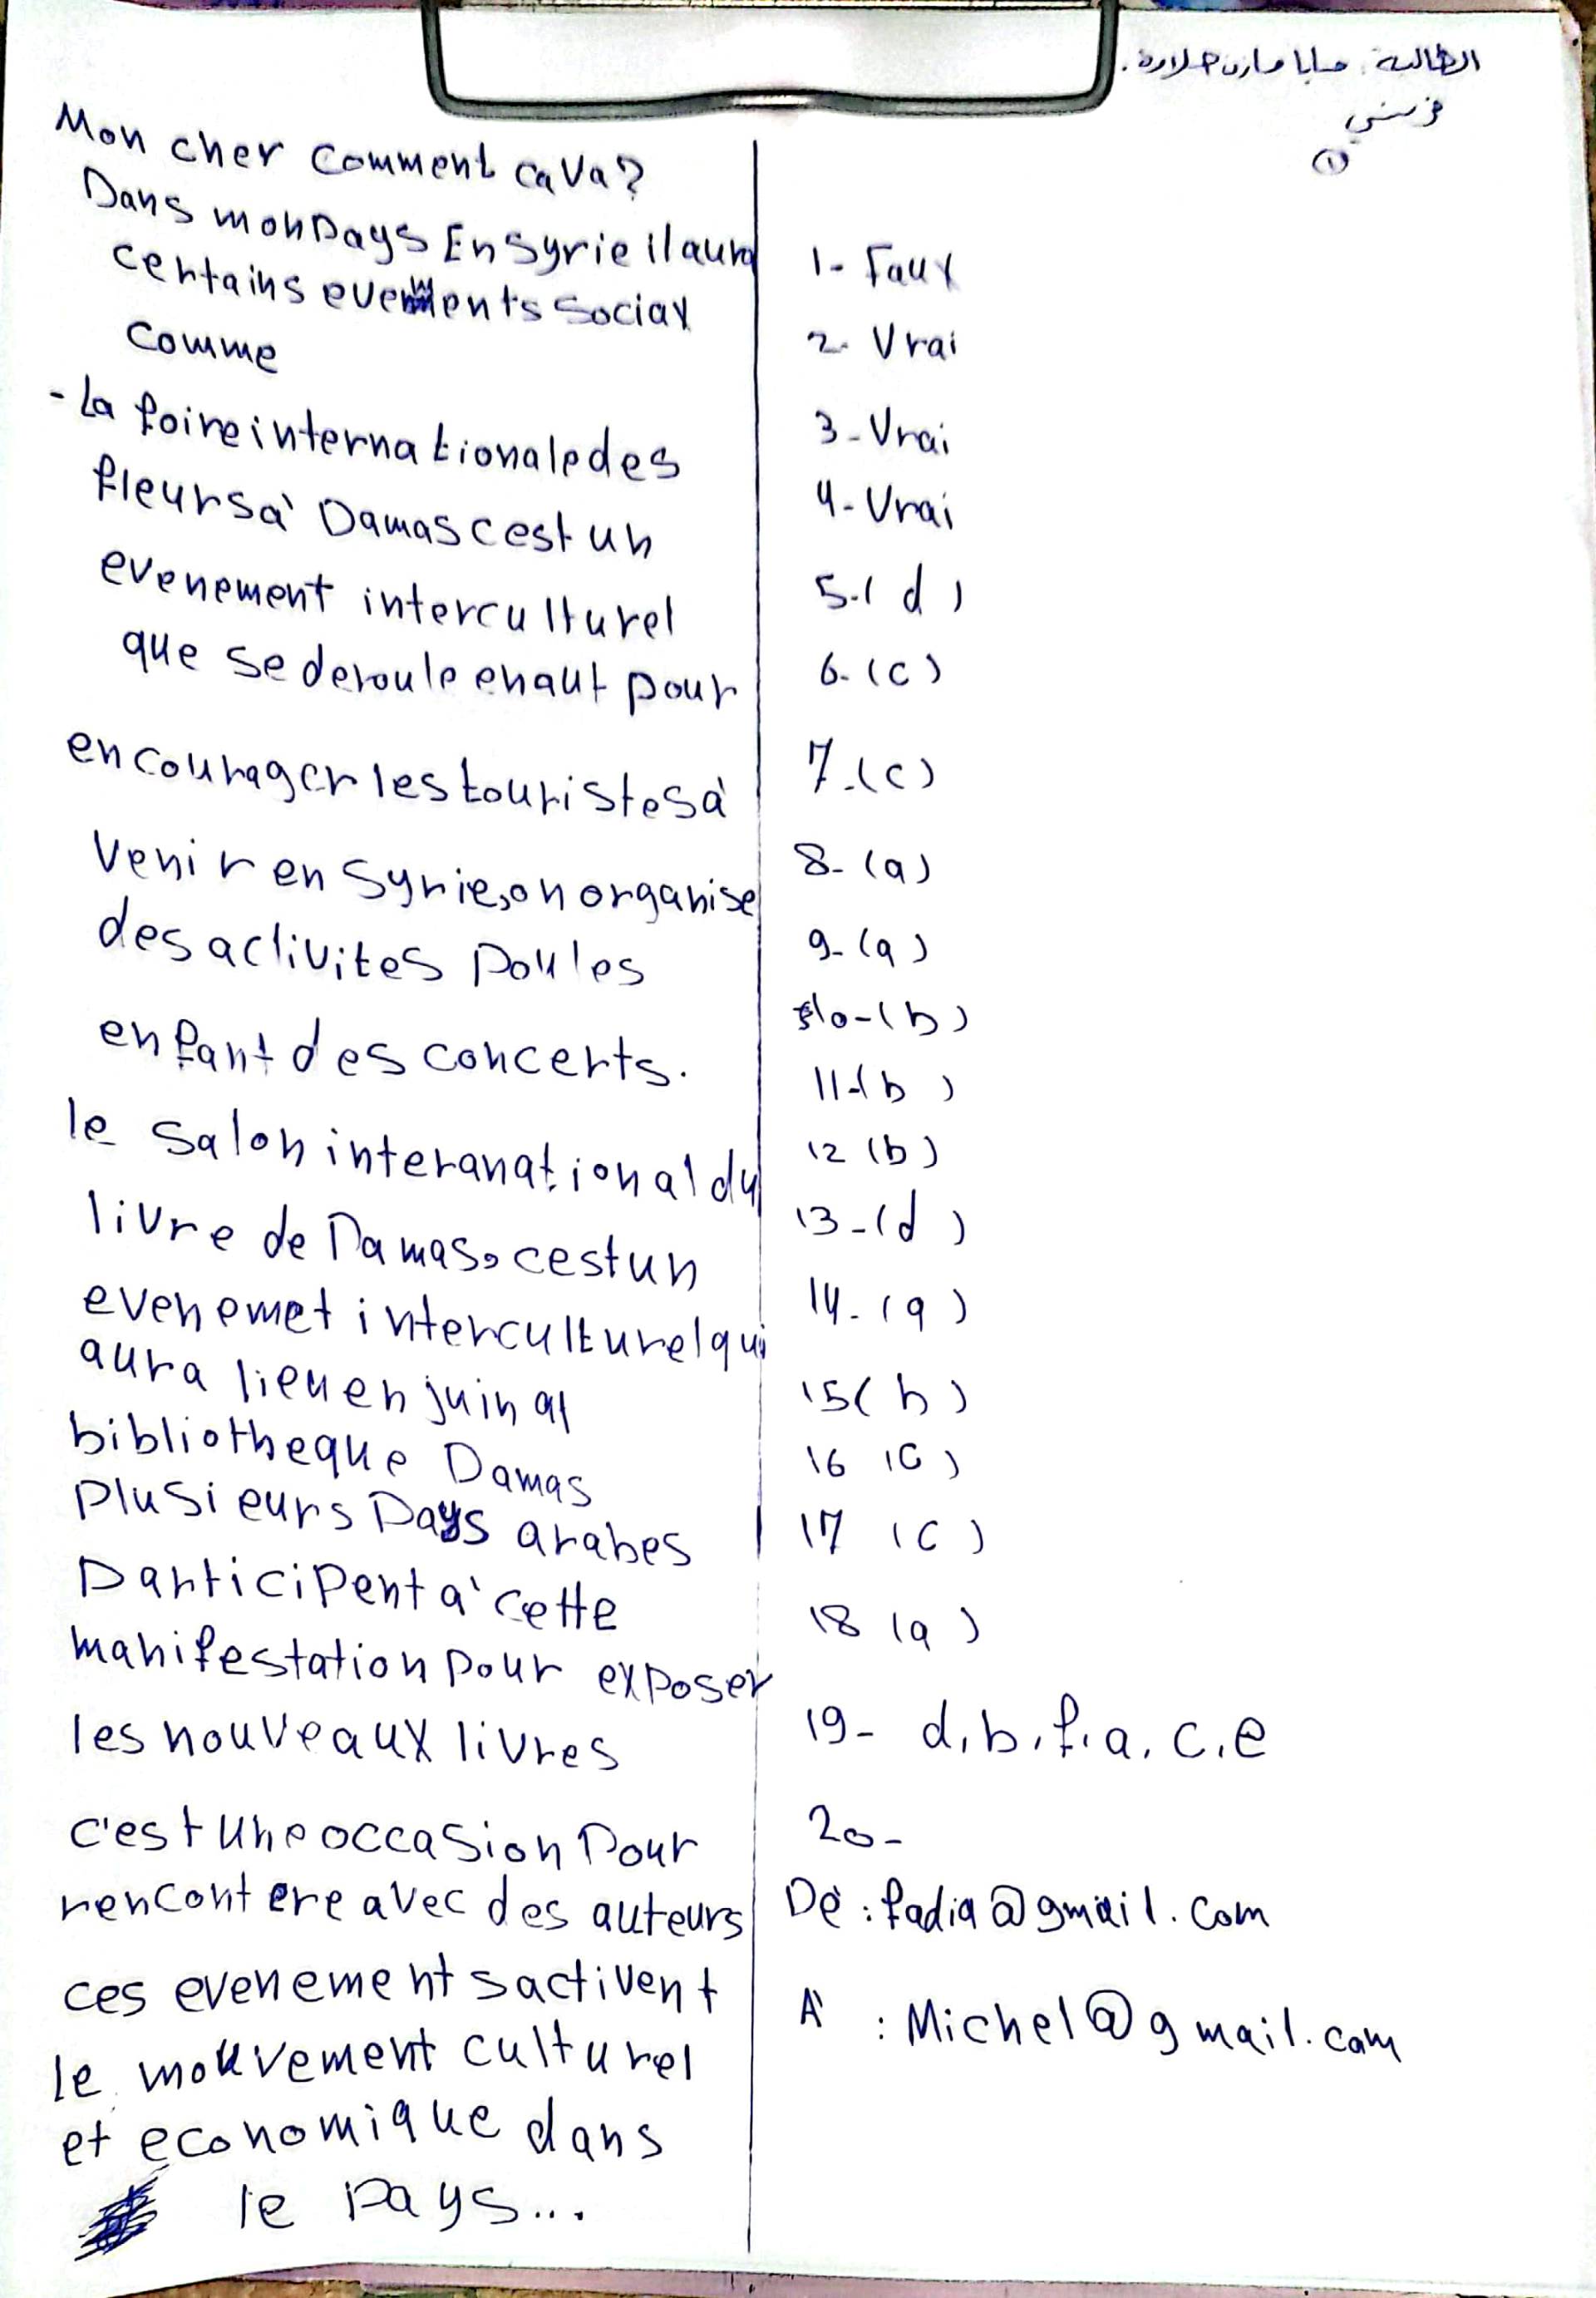 الطالبة: مازن حلاوة.
فرنسي
①
1- Faux
2- Vrai
3- Vrai
4- Vrai
5-( d )
6- (c)
7-(c)
8- (a)
9- (a)
10-(b)
11-(b )
12 (b)
13-(d )
14-(a)
15( b )
16 (c)
17 (c)
18 (a)
19- d, b, f, a, c, e
20-
De : fadia@gmail.com
A' : Michel@gmail.com
Mon cher comment ca va?
Dans mon Pays En Syrie il aura
certains evements social
comme
- La foire internationale des
fleurs à Damas cest un
evenement interculturel
que se deroule enaut pour
encourager les touristes à
venir en Syrie, on organise
des activites Pou les
enfant des concerts.
le salon interanational du
livre de Damas, cest un
evenemet interculturel qui
aura lieu en juin al
bibliotheque Damas
Plusieurs Pays arabes
Participent a' cette
manifestation Pour exposer
les nouveaux livres
c'est une occasion Pour
rencontere avec des auteurs
ces evenements activent
le mouvement culturel
et economique dans
le Pays...